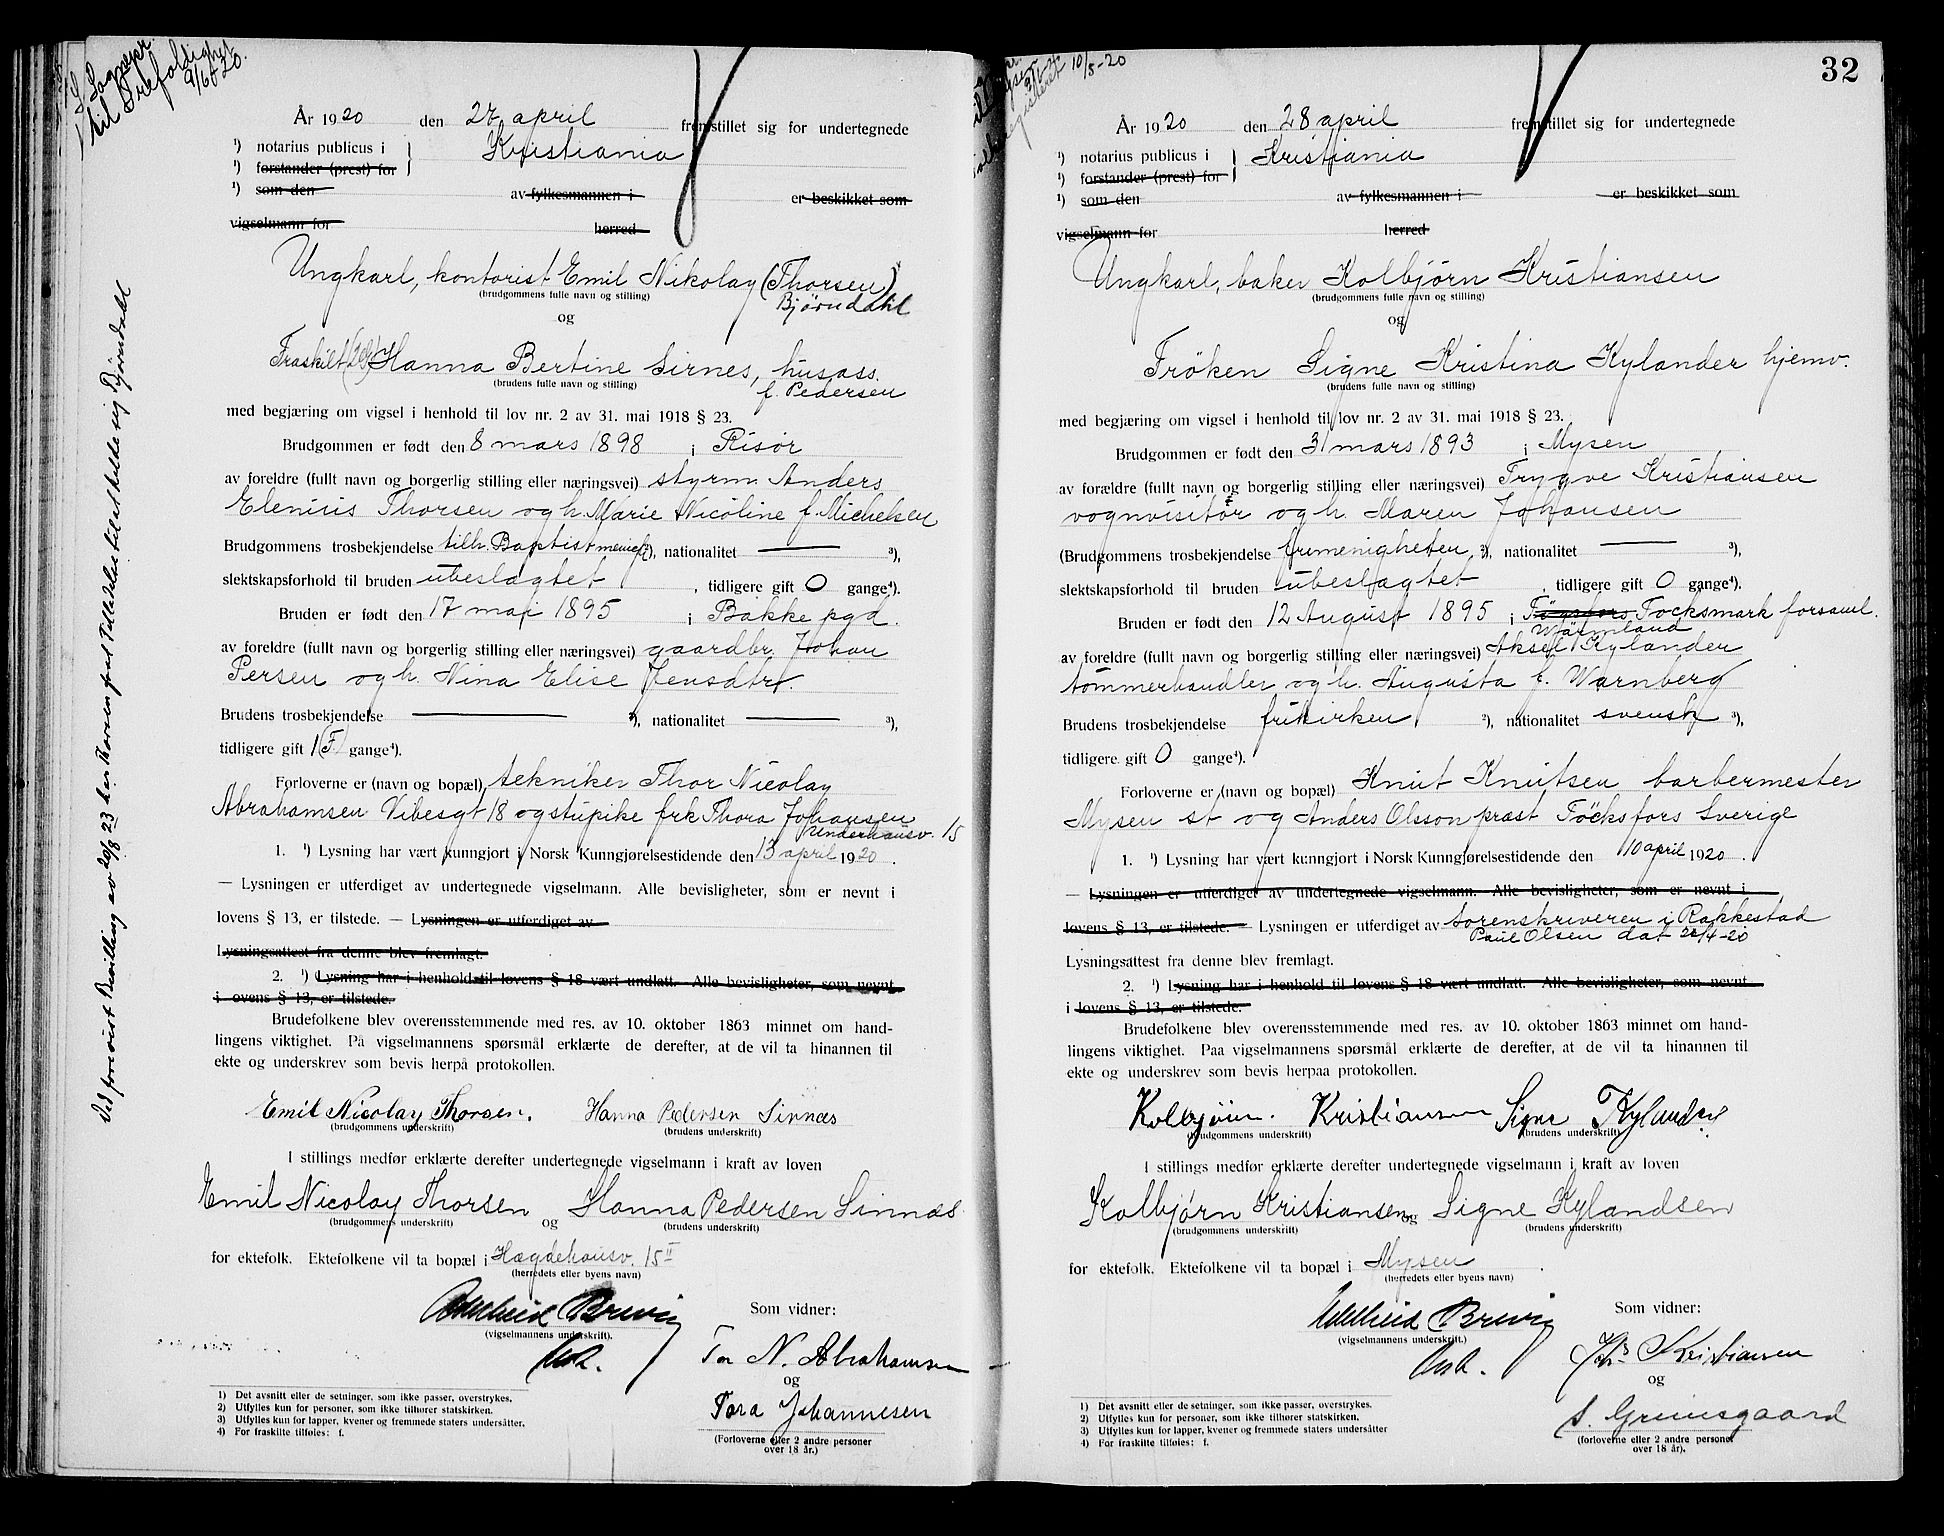 til Trefoldighet
9/6-20.
År 1920 den 27 april fremstillet sig for undertegnede
¹) notarius publicus i Kristiania
¹) forstander (prest) for
¹) som den av fylkesmannen i er beskikket som
vigselmann for herred
Ungkarl, kontorist Emil Nikolay (Thorsen)
(brudgommens fulle navn og stilling)
Bjørndahl
og
Fraskilt Hanna Bertine Sirnes, husass.
(brudens fulle navn og stilling)
f. Pedersen
med begjæring om vigsel i henhold til lov nr. 2 av 31. mai 1918 § 23.
Brudgommen er født den 8 mars 1898 i Risør
av foreldre (fullt navn og borgerlig stilling eller næringsvei) styrm Anders
Elenius Thorsen og h. Marie Nicoline f. Michelsen
Brudgommens trosbekjendelse tilh. Baptistmenigh ²), nationalitet — ³),
slektskapsforhold til bruden ubeslægtet, tidligere gift 0 gange⁴).
Bruden er født den 17 mai 1895 i Bakke pgd.
av foreldre (fullt navn og borgerlig stilling eller næringsvei) gaardbr. Johan
Persen og h. Nina Elise Jensdtr.
Brudens trosbekjendelse — ²), nationalitet — ³),
tidligere gift 1 (F) gange⁴).
Forloverne er (navn og bopæl) tekniker Thor Nicolay
Abrahamsen Vibesgt 18 og stupike frk Thora Johansen
Underhausv. 15
1. ¹) Lysning har vært kunngjort i Norsk Kunngjørelsestidende den 13 april 1920.
— Lysningen er utferdiget av undertegnede vigselmann. Alle bevisligheter, som er nevnt i
lovens § 13, er tilstede. — Lysningen er utferdiget av
Lysningsattest fra denne blev fremlagt.
2. ¹) Lysning har i henhold til lovens § 18 vært undlatt. Alle bevisligheter, som nevnt
i lovens § 13, er tilstede.
Brudefolkene blev overensstemmende med res. av 10. oktober 1863 minnet om hand-
lingens viktighet. På vigselmannens spørsmål erklærte de derefter, at de vil ta hinannen til
ekte og underskrev som bevis herpå protokollen.
Emil Nicolay Thorsen. Hanna Pedersen Sinnæs
(brudgommens underskrift) (brudens underskrift)
I stillings medfør erklærte derefter undertegnede vigselmann i kraft av loven
Emil Nicolay Thorsen og Hanna Pedersen Sinnæs
(brudgommens underskrift) (brudens underskrift)
for ektefolk. Ektefolkene vil ta bopæl i Hægdehausv. 15 II
(herredets eller byens navn)
Brevig
(vigselmannens underskrift).
Som vidner:
Tor N. Abrahamsen
og
Tora Johannesen
(Forloverne eller 2 andre personer
over 18 år.)
1) Det avsnitt eller de setninger, som ikke passer, overstrykes.
2) Utfylles kun for personer, som ikke tilhører statskirken.
3) Utfylles kun for lapper, kvener og fremmede staters undersåtter.
4) For fraskilte tilføies: f.
Ved forevist Bevilling av 20/8 23 har Thorsen faat Tilladelse til at kalde sig Bjørndahl
10/5-20
32
År 1920 den 28 april fremstillet sig for undertegnede
¹) notarius publicus i Kristiania
¹) forstander (prest) for
¹) som den av fylkesmannen i er beskikket som
vigselmann for herred
Ungkarl, baker Kolbjørn Kristiansen
(brudgommens fulle navn og stilling)
og
Frøken Signe Kristina Kylander hjemv.
(brudens fulle navn og stilling)
med begjæring om vigsel i henhold til lov nr. 2 av 31. mai 1918 § 23.
Brudgommen er født den 31 mars 1893 i Mysen
av forældre (fullt navn og borgerlig stilling eller næringsvei) Trygve Kristiansen
vognvisitør og h. Maren Johansen
(Brudgommens trosbekjendelse frimenigheten ²), nationalitet — ³),
slektskapsforhold til bruden ubeslægtet, tidligere gift 0 gange⁴).
Bruden er født den 12 August 1895 i Focksmark forsaml.
Wärmland
av foreldre (fullt navn og borgerlig stilling eller næringsvei) Aksel Kylander
tömmerhandler og h. Augusta f. Warnberg
Brudens trosbekjendelse frikirken ²), nationalitet svensk ³),
tidligere gift 0 gange⁴).
Forloverne er (navn og bopæl) Knut Knutsen barbermester
Mysen st og Anders Olsson præst Töcksfors Sverige
1. ¹) Lysning har vært kunngjort i Norsk Kunngjørelsestidende den 10 april 1920.
— Lysningen er utferdiget av undertegnede vigselmann. Alle bevisligheter, som er nevnt i
lovens § 13, er tilstede. — Lysningen er utferdiget av sorenskriveren i Rakkestad
Paul Olsen dat 22/4-20
Lysningsattest fra denne blev fremlagt.
2. ¹) Lysning har i henhold til lovens § 18 vært undlatt. Alle bevisligheter, som nevnt
i lovens § 13, er tilstede.
Brudefolkene blev overensstemmende med res. av 10. oktober 1863 minnet om hand-
lingens viktighet. Paa vigselmannens spørsmål erklærte de derefter, at de vil ta hinannen til
ekte og underskrev som bevis herpaa protokollen.
Kolbjörn. Kristiansen Signe Kylander
(brudgommens underskrift) (brudens underskrift)
I stillings medfør erklærte derefter undertegnede vigselmann i kraft av loven
Kolbjørn Kristiansen og Signe Kylandsen
(brudgommens underskrift) (brudens underskrift)
for ektefolk. Ektefolkene vil ta bopæl i Mysen.
(herredets eller byens navn)
Brevig
(vigselmannens underskrift.)
Som vidner:
Johs Kristiansen
og
S. Grimsgaard
(forloverne eller 2 andre personer
over 18 år).
1) Det avsnitt eller de setninger, som ikke passer, overstrykes.
2) Utfylles kun for personer, som ikke tilhører statskirken.
3) Utfylles kun for lapper, kvener og fremmede staters undersåtter
4) For fraskilte tilføies: f.